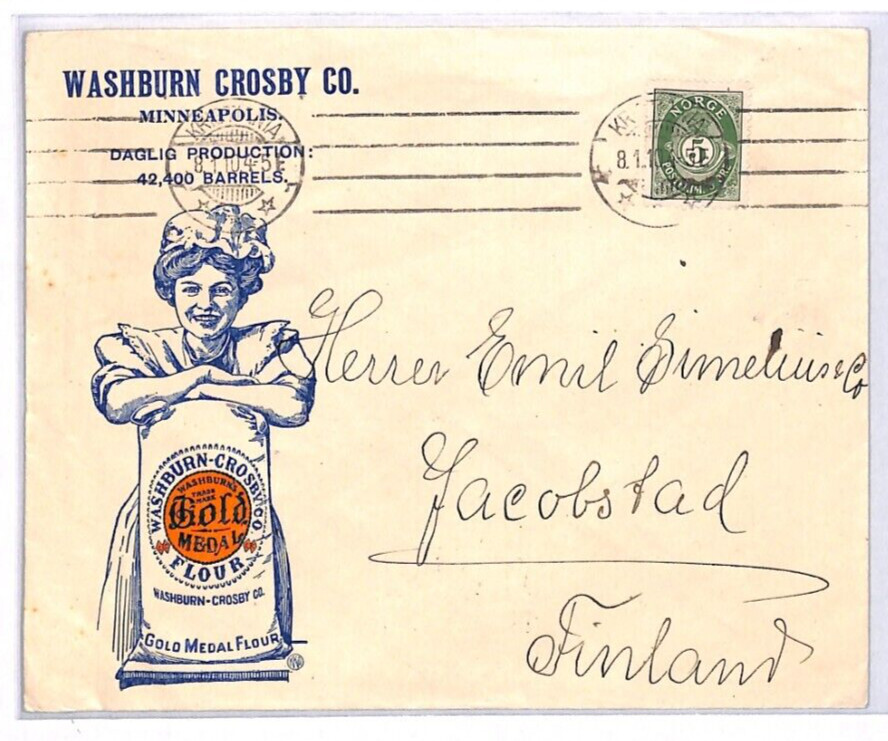 WASHBURN CROSBY CO.
MINNEAPOLIS.
DAGLIG PRODUCTION:
42,400 BARRELS.
8.1.10.4-5
NORGE
5
8.1.1
Herrer Emil Simelius & Co
Jacobstad
Finland
WASHBURN-CROSBY CO.
WASHBURN'S
TRADE
MARK
Gold
MEDAL
FLOUR
WASHBURN-CROSBY CO.
GOLD MEDAL FLOUR